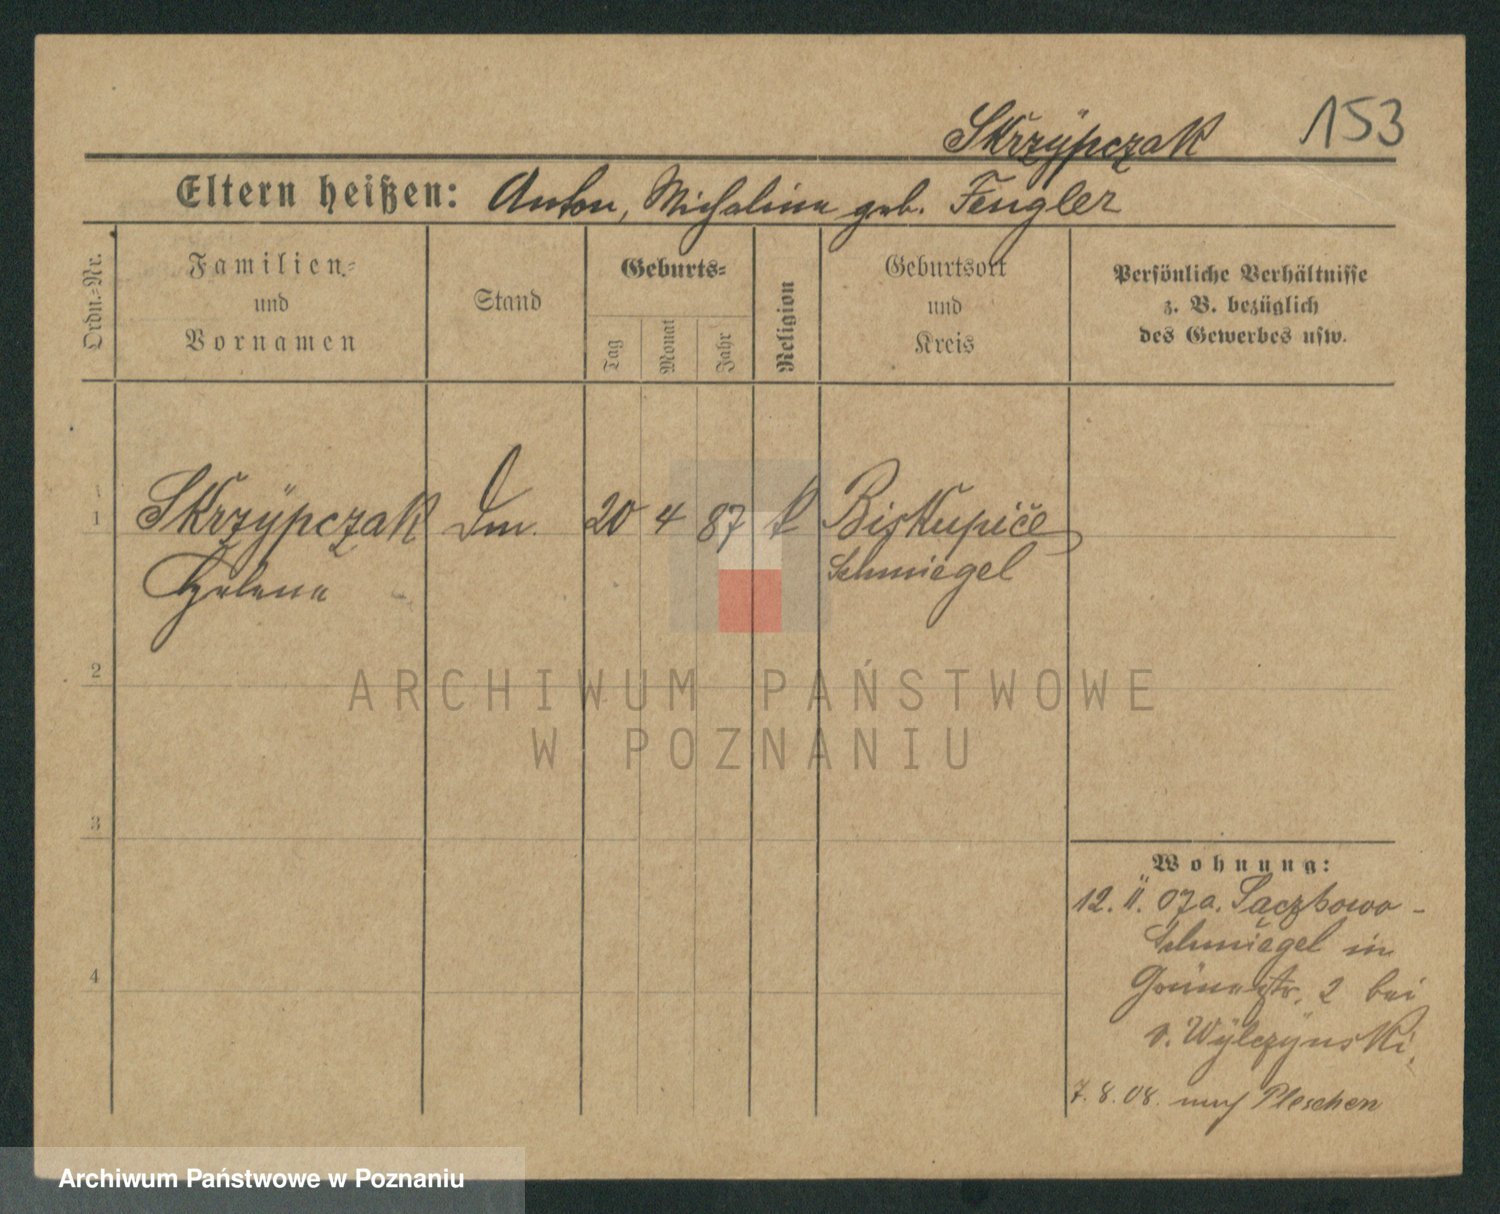 Skrzÿpczak 153
Eltern heißen: Anton, Michalina geb. Fengler
Ordn.-Nr.
Familien-
und
Vornamen
Stand
Geburts-
Tag
Monat
Jahr
Religion
Geburtsort
und
Kreis
Persönliche Verhältnisse
z. B. bezüglich
des Gewerbes usw.
1 Skrzÿpczak 20 4 87 k Biskupice
Helena Schmiegel
2
ARCHIWUM PAŃSTWOWE
W POZNANIU
3
Wohnung:
12. II. 07 a.
4
Schmiegel in
2 bei
v. Wÿlczÿnski.
7. 8. 08. nach Pleschen
Archiwum Państwowe w Poznaniu